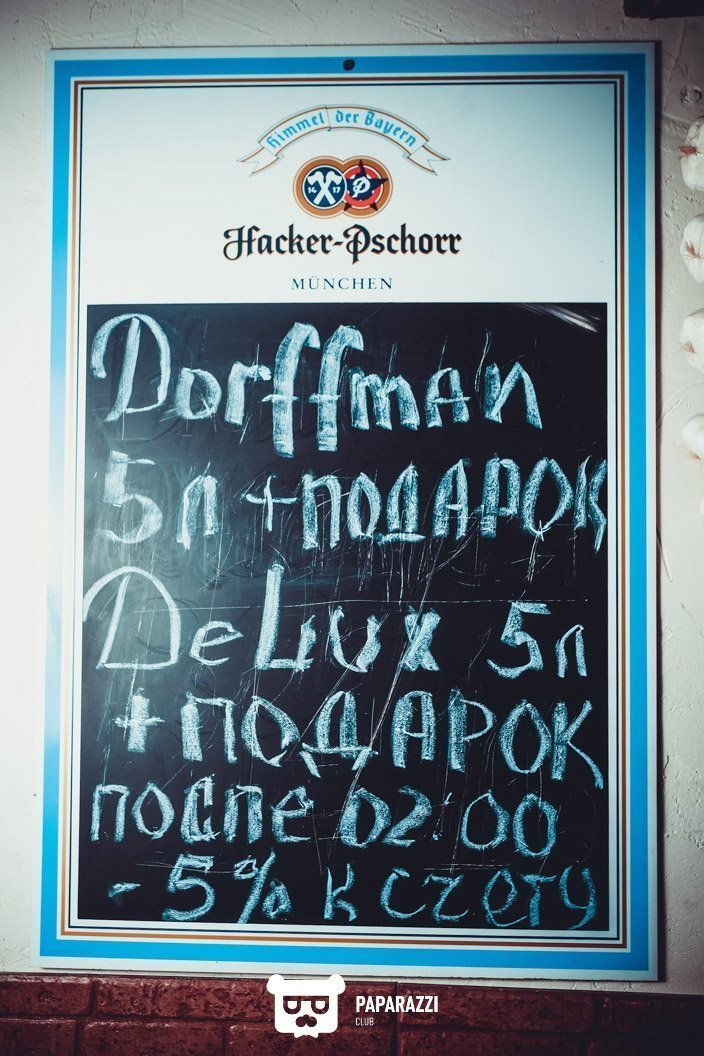 Himmel der Bayern
14 17
P
Hacker-Pschorr
MÜNCHEN
Dorffman
5л + ПОДАРОК
DeLux 5л
+ ПОДАРОК
после 02:00
- 5% к счету
PAPARAZZI
CLUB